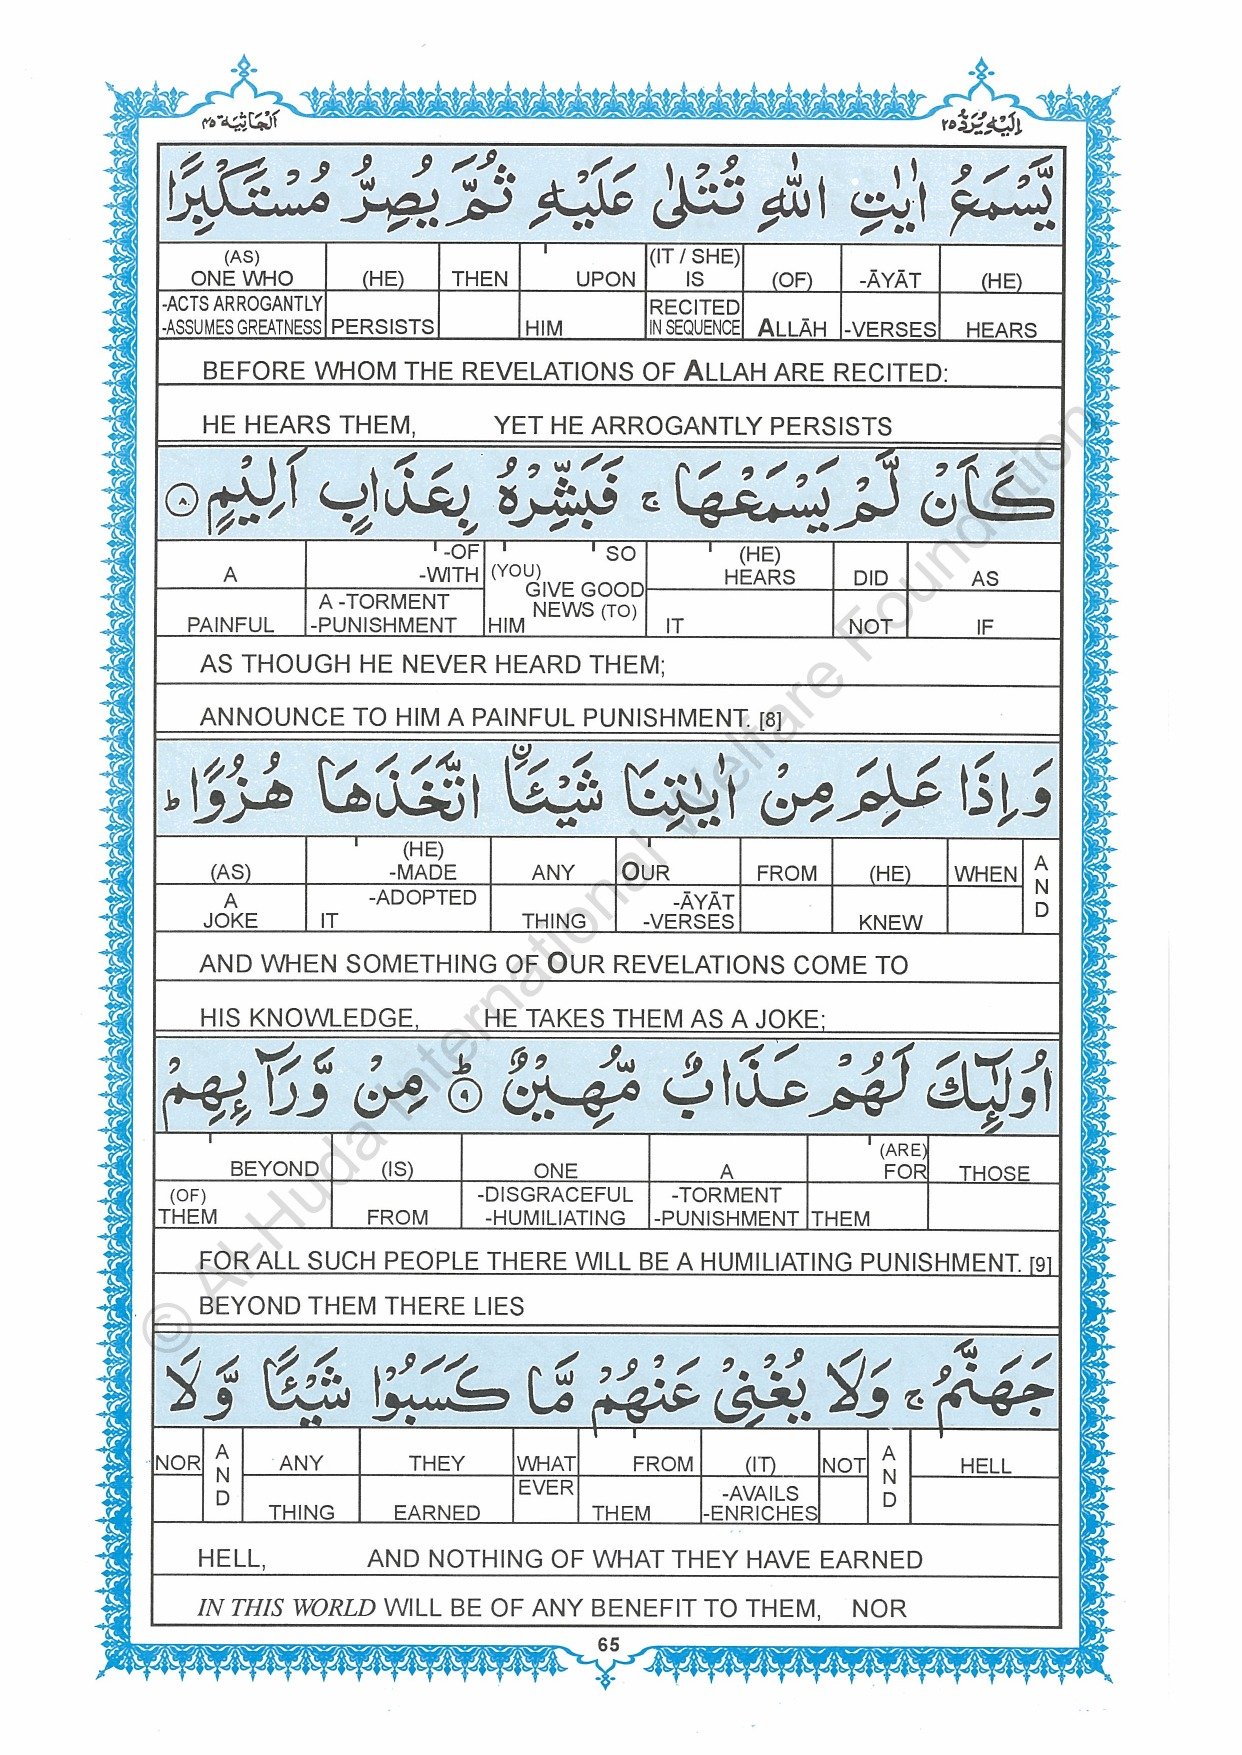 اَلْجَاثِيَة ٤٥
اِلَيْهِ يُرَدُّ ٢٥
يَّسْمَعُ اٰيٰتِ اللّٰهِ تُتْلٰى عَلَيْهِ ثُمَّ يُصِرُّ مُسْتَكْبِرًا
(AS) (IT / SHE)
ONE WHO (HE) THEN UPON IS (OF) -ĀYĀT (HE)
-ACTS ARROGANTLY RECITED
-ASSUMES GREATNESS PERSISTS HIM IN SEQUENCE ALLĀH -VERSES HEARS
BEFORE WHOM THE REVELATIONS OF ALLAH ARE RECITED:
HE HEARS THEM, YET HE ARROGANTLY PERSISTS
كَاَنْ لَّمْ يَسْمَعْهَا ۚ فَبَشِّرْهُ بِعَذَابٍ اَلِيْمٍ ٨
-OF SO (HE)
A -WITH (YOU) HEARS DID AS
GIVE GOOD
A -TORMENT NEWS (TO)
PAINFUL -PUNISHMENT HIM IT NOT IF
AS THOUGH HE NEVER HEARD THEM;
ANNOUNCE TO HIM A PAINFUL PUNISHMENT. [8]
وَاِذَا عَلِمَ مِنْ اٰيٰتِنَا شَيْـًٔا ۨ اتَّخَذَهَا هُزُوًا ؕ
(HE) AND
(AS) -MADE ANY OUR FROM (HE) WHEN
A -ADOPTED -ĀYĀT
JOKE IT THING -VERSES KNEW
AND WHEN SOMETHING OF OUR REVELATIONS COME TO
HIS KNOWLEDGE, HE TAKES THEM AS A JOKE;
اُولٰٓئِكَ لَهُمْ عَذَابٌ مُّهِيْنٌ ؕ ٩ مِنْ وَّرَآئِهِمْ
(ARE)
BEYOND (IS) ONE A FOR THOSE
(OF) -DISGRACEFUL -TORMENT
THEM FROM -HUMILIATING -PUNISHMENT THEM
FOR ALL SUCH PEOPLE THERE WILL BE A HUMILIATING PUNISHMENT. [9]
BEYOND THEM THERE LIES
جَهَنَّمُ ۚ وَلَا يُغْنِيْ عَنْهُمْ مَّا كَسَبُوْا شَيْـًٔا وَّلَا
NOR AND ANY THEY WHAT FROM (IT) NOT AND HELL
EVER -AVAILS
THING EARNED THEM -ENRICHES
HELL, AND NOTHING OF WHAT THEY HAVE EARNED
IN THIS WORLD WILL BE OF ANY BENEFIT TO THEM, NOR
65
© Al-Huda International Welfare Foundation